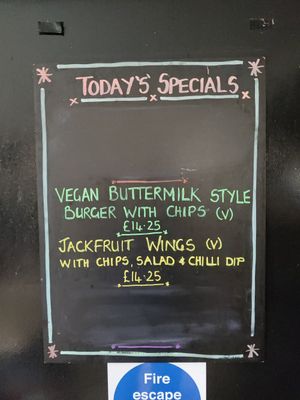 TODAY'S SPECIALS
VEGAN BUTTERMILK STYLE
BURGER WITH CHIPS (V)
£14.25
JACKFRUIT WINGS (V)
WITH CHIPS, SALAD & CHILLI DIP
£14.25
Fire
escape